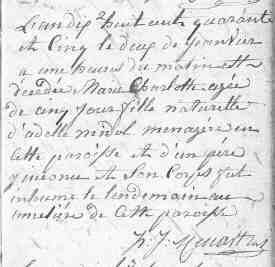 L'an dix huit cents quarante
et Cinq le deux de Janvier
a une heures du matin est
décédée Marie Charlotte agée
de cinq jour fille naturelle
d'adelle menagère en
cette paroisse et d'un père
inconnu et son Corps fut
inhumé le lendemain au
cimetière de cette paroisse